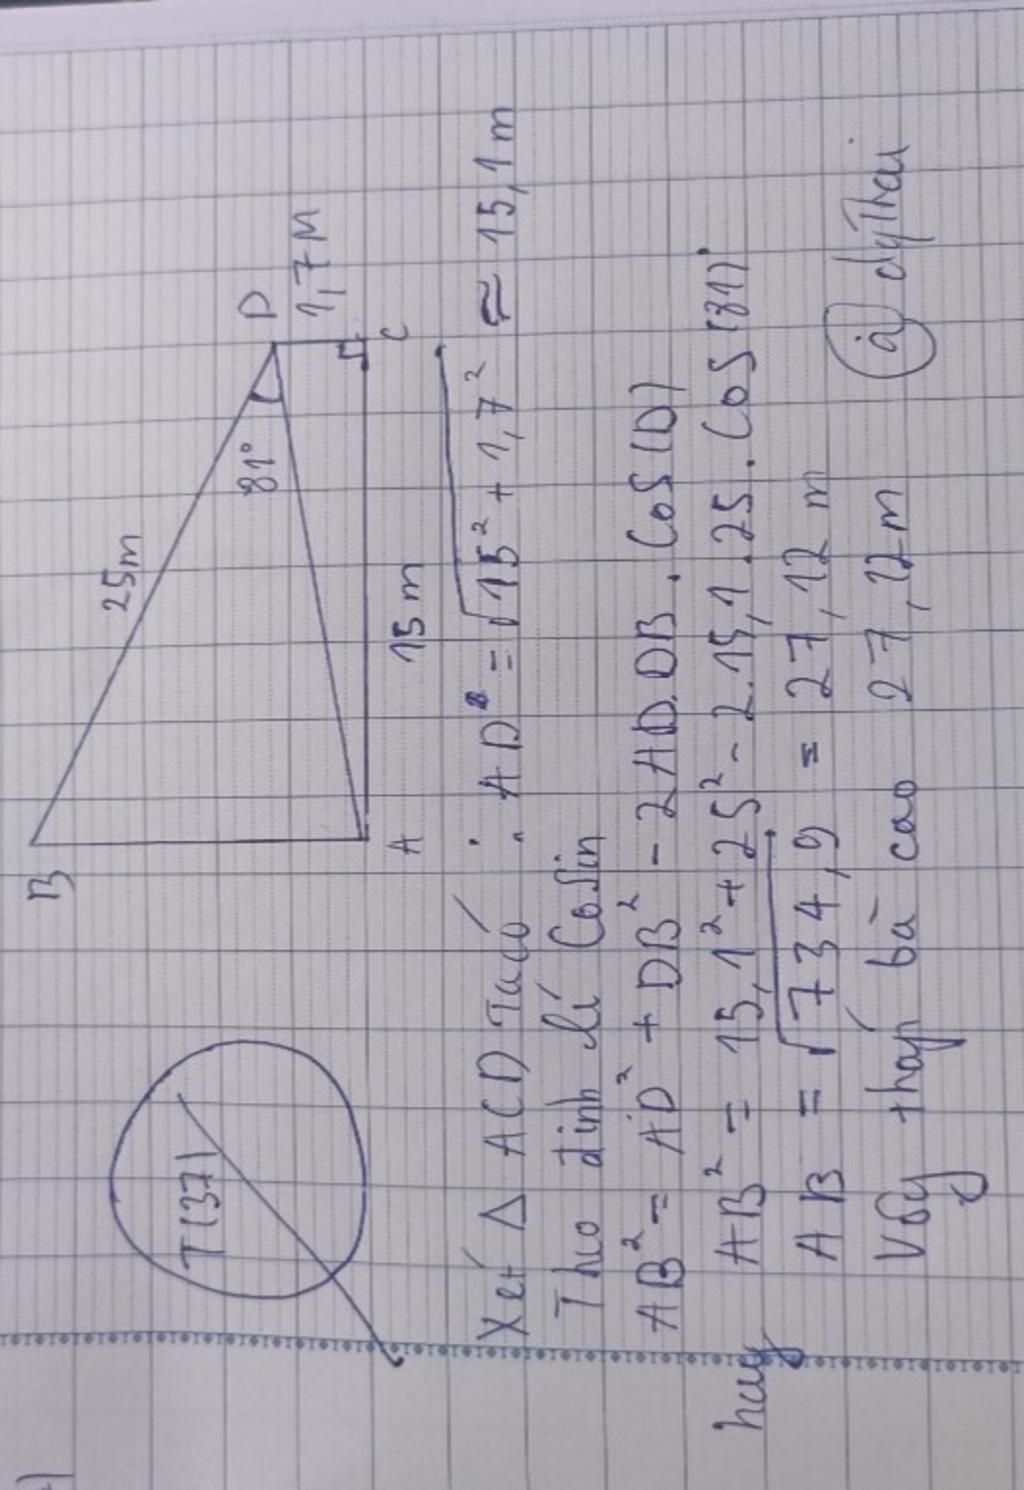 T(37)
B
25m
81°
D
1,7M
A
15m
C
Xét Δ ACD Ta có : AD = √15² + 1,7² ≈ 15,1m
Theo định lí Cosin
AB² = AD² + DB² - 2AD.DB . Cos(D)
hay AB² = 15,1² + 25² - 2.15,1.25 . Cos(81)°
AB = √734,9 = 27,12 m
Vậy tháp bà cao 27,12m